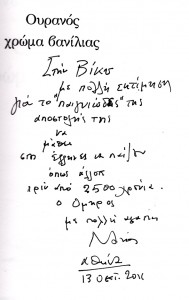 Ουρανός
χρώμα βανίλιας
Στην Βίκυ
με πολλή εκτίμηση
για το "παιγνιώδες" της
αποστολής της
να
μάθει
στα Ελλην να παίζουν
όπως άλλοτε
πριν από 2500 χρόνια.
ο Όμηρος
με πολλή αγάπη
Αθήνα
13 Οκτ. 2011